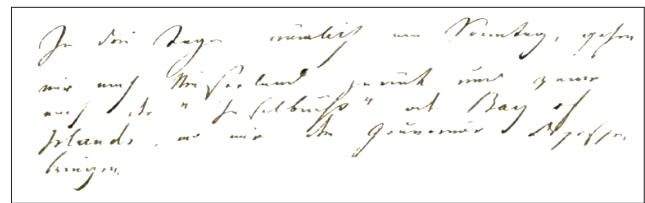 In drei Tagen nämlich am Sonntag, gehen
wir nach Neuseeland zurück und zwar
nach der "Inselbucht" od. Bay of
Islands, wo wir den Gouverneur
bringen.